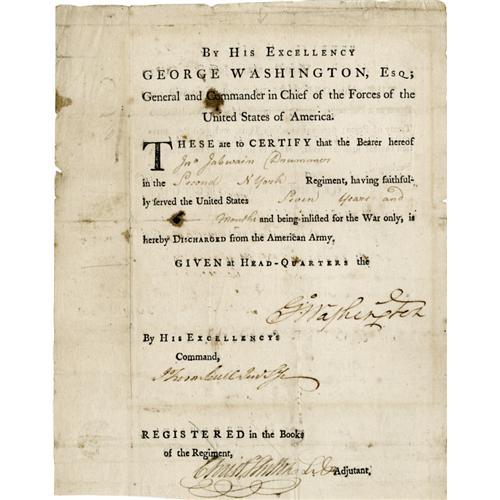 BY HIS EXCELLENCY
GEORGE WASHINGTON, ESQ;
General and Commander in Chief of the Forces of the
United States of America.
THESE are to CERTIFY that the Bearer hereof
Drummer
in the Second N York Regiment, having faithful-
ly served the United States Seven Years and
Months and being inlisted for the War only, is
hereby DISCHARGED from the American Army.
GIVEN at HEAD-QUARTERS the
G Washington
BY HIS EXCELLENCY'S
Command,
J Trumbull Jun
REGISTERED in the Books
of the Regiment,
Adjutant,